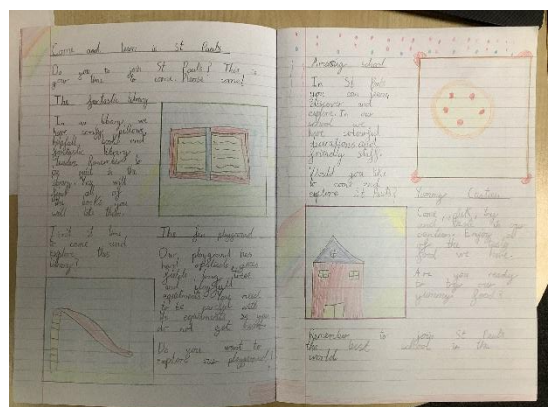 Come and learn in St Pauls
Do you to join St Pauls? This is
your time to come. Please come!
The fantastic library
In our library we
have comfy pillows,
helpful, books and
fantastic library
leader. Remember to
be quiet in the
library. You will
love all of
the books you
will let them.
Is it time
to come and
explore this
library?
The fun playground
Our playground has
hard obstacle course
and playful
equipment. You need
to be careful with
the equipment so you
do not get hurt.
Do you want to
explore our playground?
Amazing school
In St Pauls
you can learn,
discover and
explore. In our
school we
have colourful
decorations and
friendly staff.
Would you like
to come and
explore St Pauls?
Yummy Canteen
Come, try
our
canteen. Enjoy
all of the
food we have.
Are you ready
to try our
yummy food?
Remember to join St Pauls
the best school in the
world.